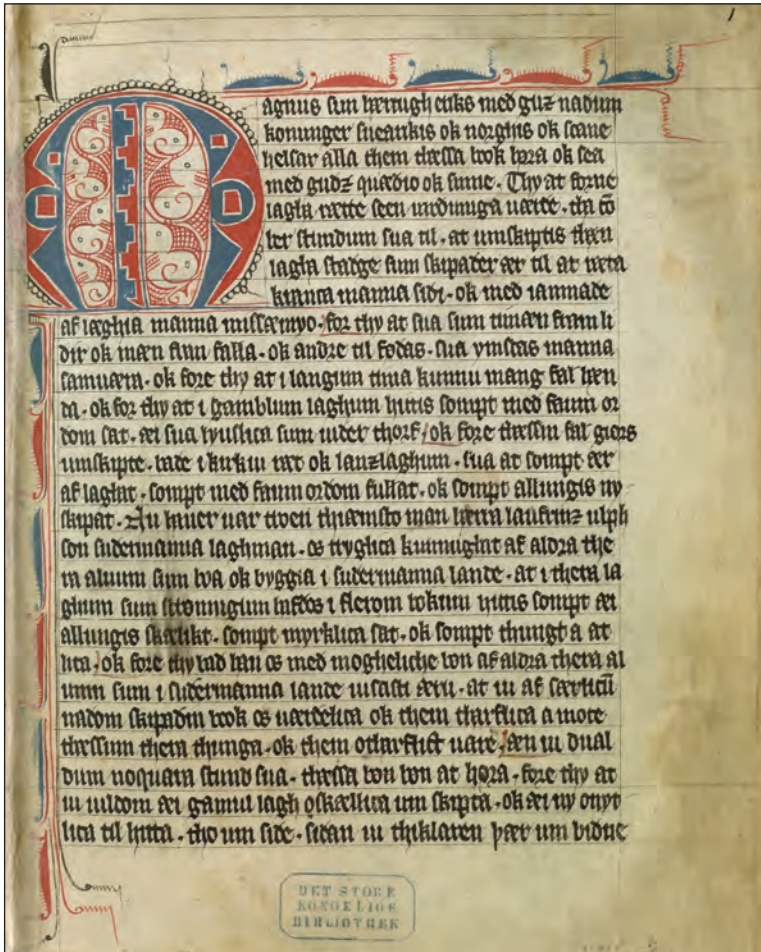 1
Magnus sun hærtugh eriks med guz nadum
konunger sueankis ok norghis ok scane
helsar alla them thæssa book høra ok sea
med gudz quædio ok sinne. Thy at forne
lagha rætte seen
ler stundum sua til. at umskiptis thæn
lagha stadge sum skipader ær til at ræta
kranca manna sidi. ok med iamnade
af læghia manna missæmyo. for thy at sua sum timæn fram li
dir ok mæn finn falla. ok andre til fødas. sua vmskas manna
samuæra. ok fore thy at i langum tima kunnu mang fal hæn
da. ok for thy at i gamblum laghum hittis sompt med faum or
dom sat. æi sua lyuslica sum uider thorf. ok fore thæssin fal giørs
umskipte. bade i kirkiu ræt ok lanzlaghum. sua at sompt ær
af laght. sompt med faum ordom fullat. ok sompt allungis ny
skipat. Nu hauer uar troen thiænisto man hærra laurinz ulph
son sudermanna laghman. os tryghlica kunnught af aldra the
ra aluum sum boa ok byggia i sudermanna lande. at i thera la
ghum sum skonnigium læsdos i flerom bokum hittis sompt æi
allungis skælikt. sompt myrklica sat. ok sompt thungt a at
lita. ok fore thy bad han os med mogheliche bøn af aldra thera al
uum sum i sudermanna lande uisasti æru. at ui af særlicū
nadom skipadin book os uærdelica ok them tharflica a mote
thæssum thera thunga. ok them otharflict uare. æn ui dual
dum noquara stund sua. thæssa bøn bøn at høra. fore thy at
ui uildom æi gamul lagh oskællica um skipta. ok æi ny onyt
lica til hitta. tho um side. sidan ui thiklaren þær um bidne
DET STORE
KONGELIGE
BIBLIOTHEK